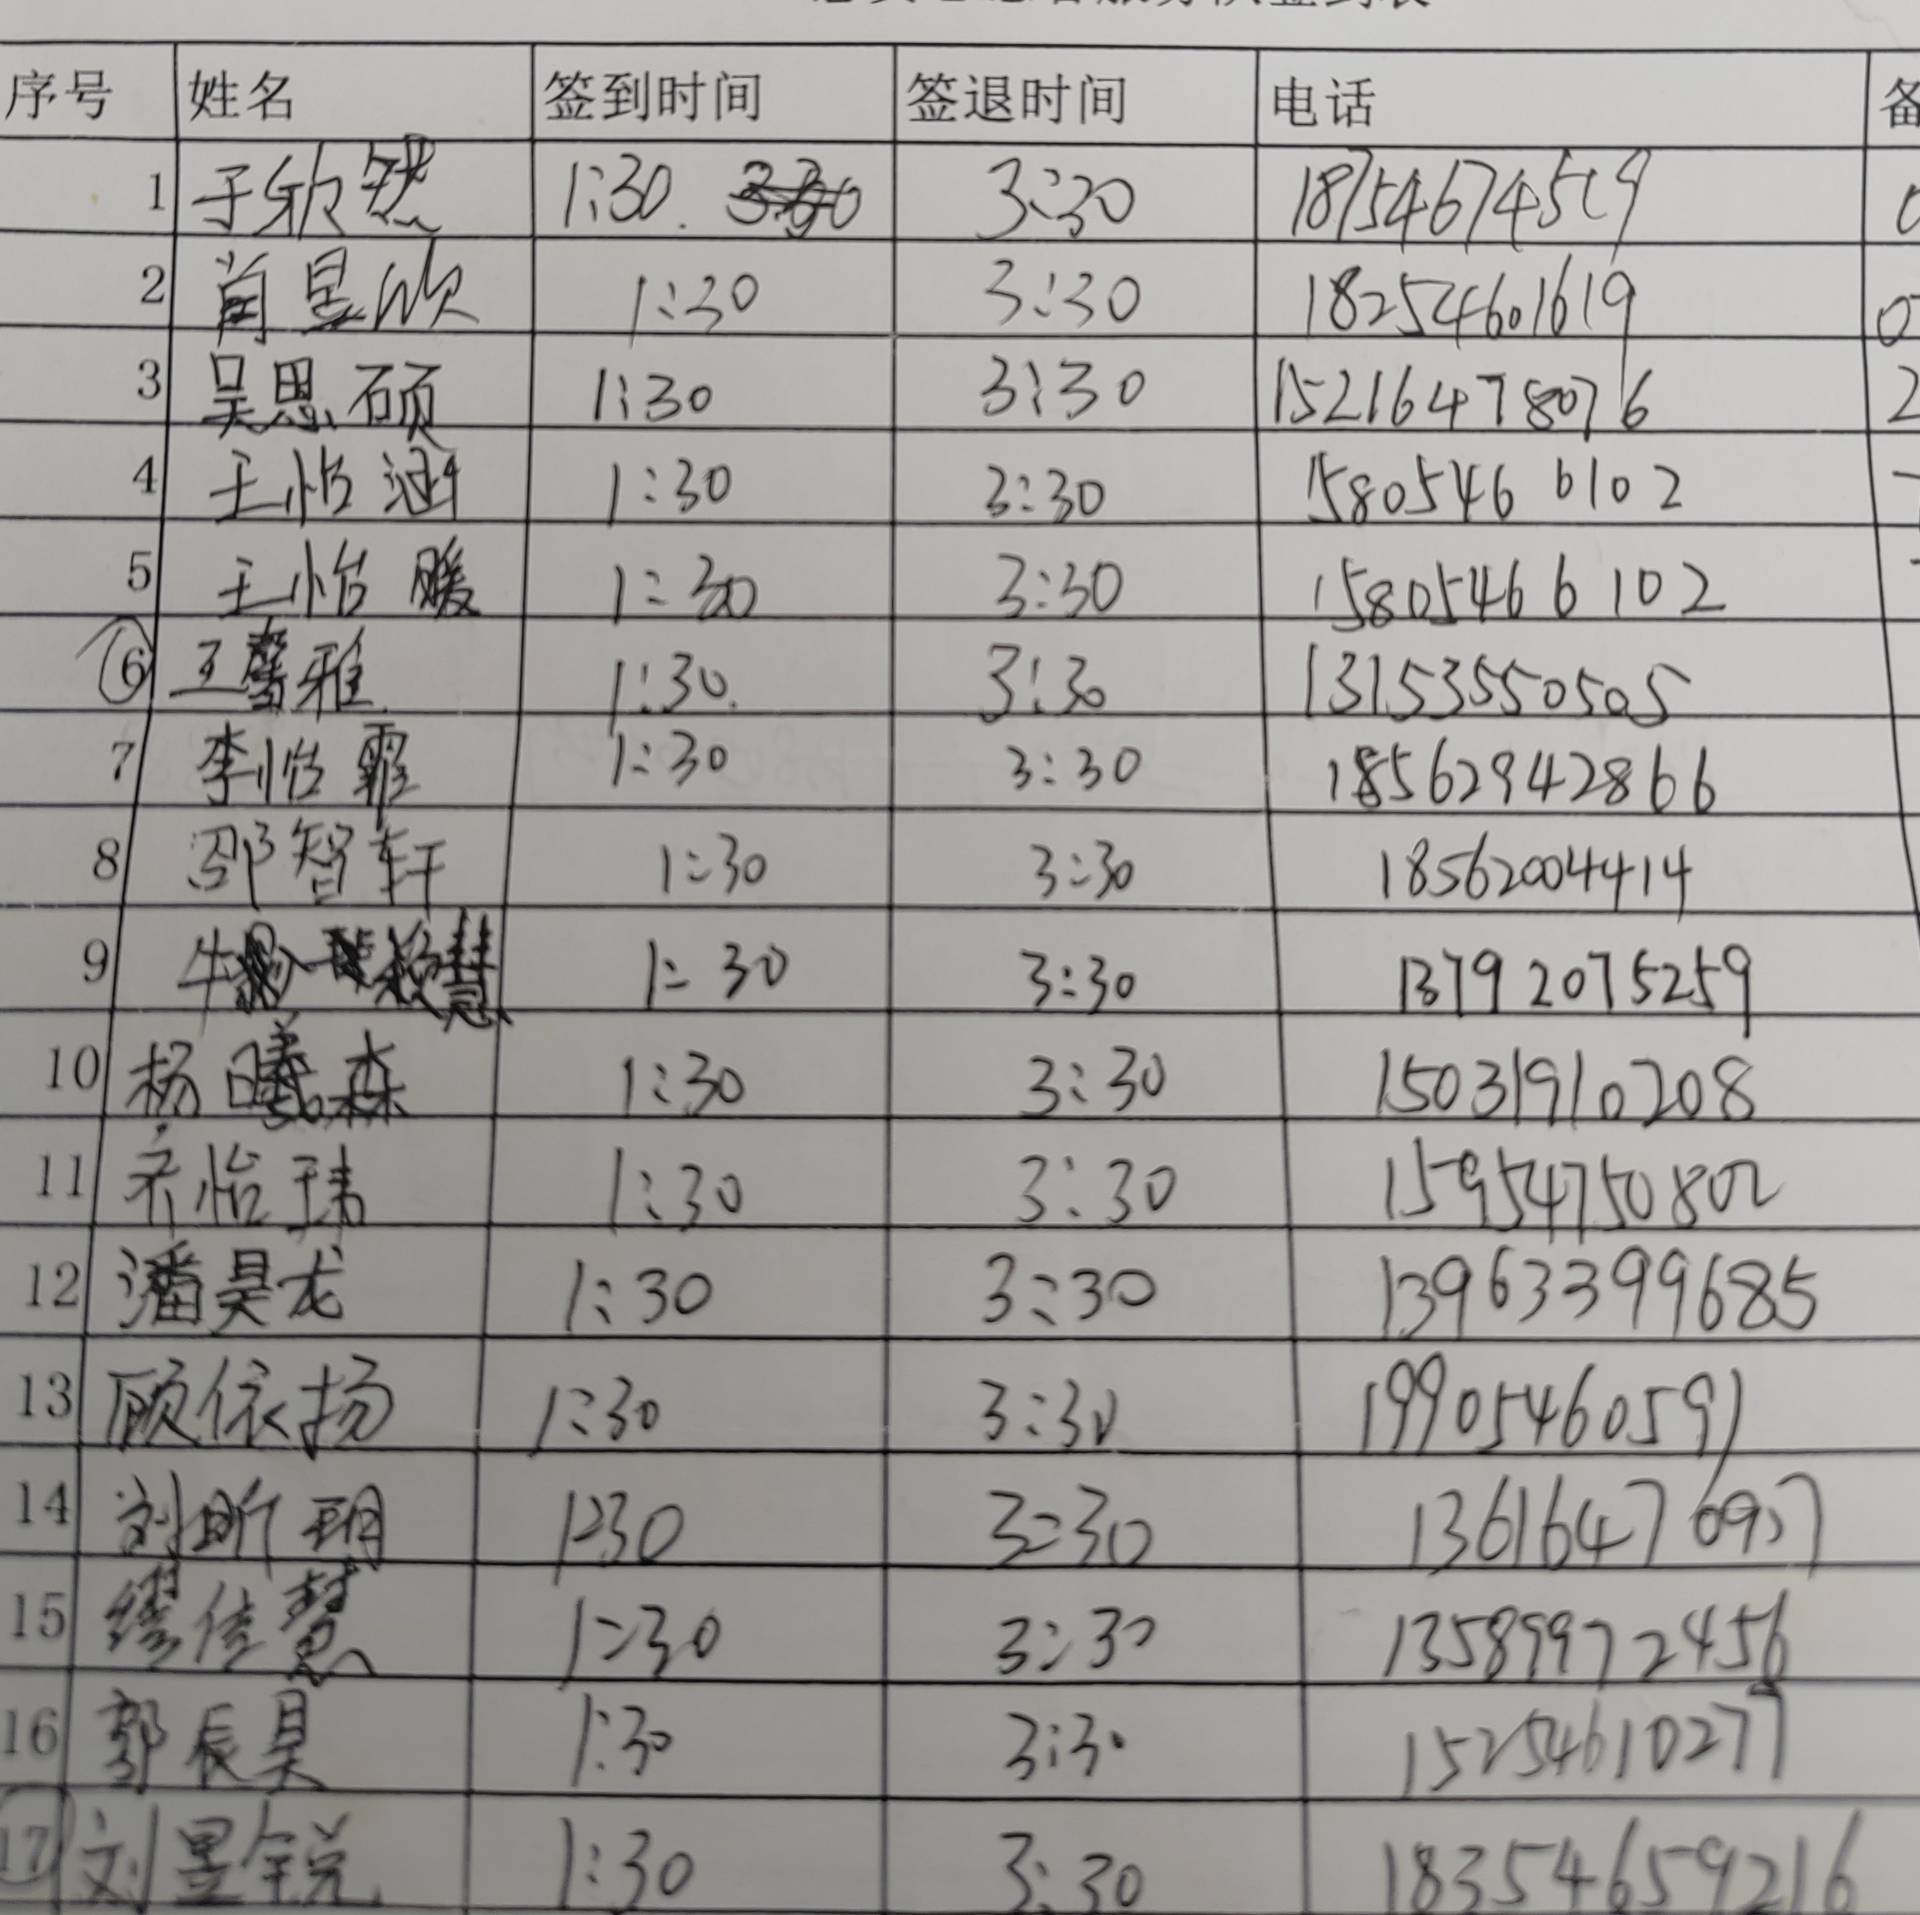 序号 姓名 签到时间 签退时间 电话 备
1 于欣然 1:30. 3:30 18754674519
2 肖昱欣 1:30 3:30 18254601619
3 吴思硕 1:30 3:30 15216478076
4 王怡涵 1:30 3:30 15805466102
5 王怡暖 1:30 3:30 15805466102
6 王馨雅 1:30. 3:30 13153550505
7 李怡霏 1:30 3:30 18562942866
8 邵智轩 1:30 3:30 18562004414
9 牛 慧 1:30 3:30 13792075259
10 杨曦森 1:30 3:30 15031910208
11 齐怡玮 1:30 3:30 15954750802
12 潘昊龙 1:30 3:30 13963399685
13 顾依扬 1:30 3:30 19905460591
14 刘昕玥 1:30 3:30
15 缪佳慧 1:30 3:30 13589972456
16 郭辰昊 1:30 3:30 15254610277
17 刘昱锐 1:30 3:30 18354659216